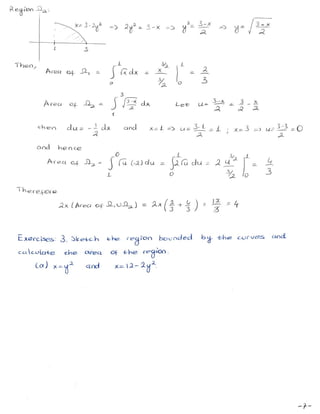 Region Ω₂:
x = 3-2y² => 2y² = 3-x => y² = (3-x)/2 => y = √((3-x)/2)
1 3
Then,
Area of Ω₁ = ∫₀¹ √x dx = x^(3/2)/(3/2) |₀¹ = 2/3
Area of Ω₂ = ∫₁³ √((3-x)/2) dx Let u = (3-x)/2 = 3/2 - x/2
then du = -1/2 dx and x=1 => u = (3-1)/2 = 1 ; x=3 => u = (3-3)/2 = 0
and hence
Area of Ω₂ = ∫₁⁰ √u (-2) du = ∫₀¹ 2√u du = 2 u^(3/2)/(3/2) |₀¹ = 4/3
Therefore
2x (Area of Ω₁∪Ω₂) = 2x (2/3 + 4/3) = 12/3 = 4
Exercises: 3. Sketch the region bounded by the curves and
calculate the area of the region.
(a) x = y² and x = 12-2y².
-7-